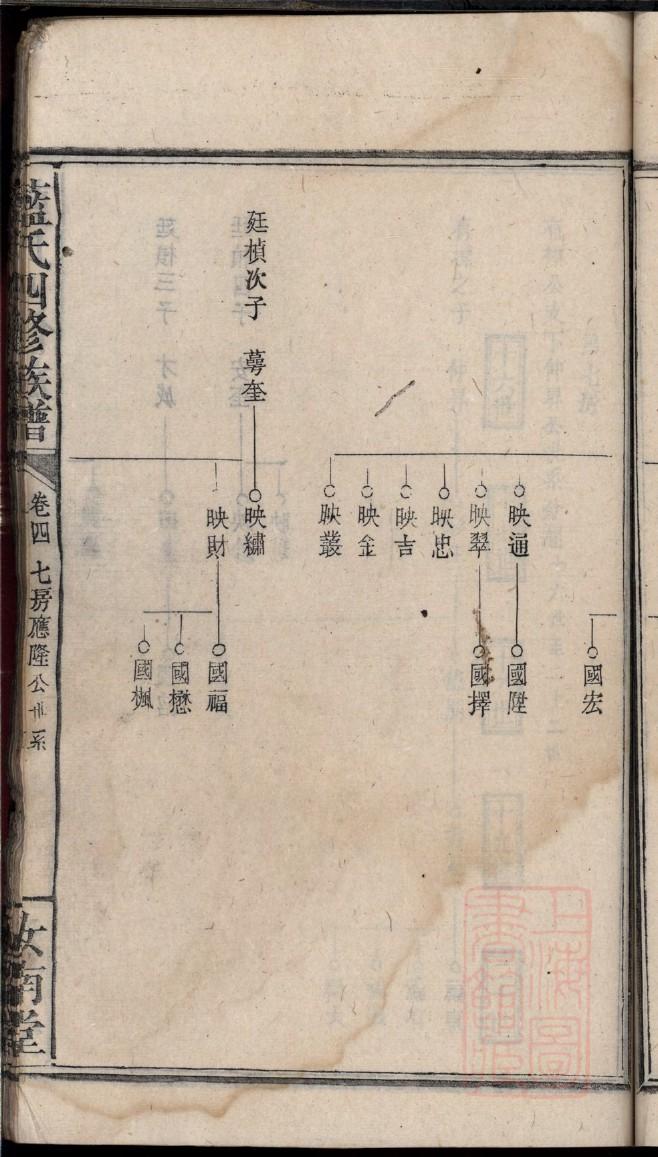 國宏
映通
國陞
映翠
國擇
映忠
映吉
映金
映叢
廷楨次子 蕚奎
映繡
映財
國福
國懋
國楓
藍氏四修族譜
卷四 七房應隆公世系
汝南堂
上海圖書館藏